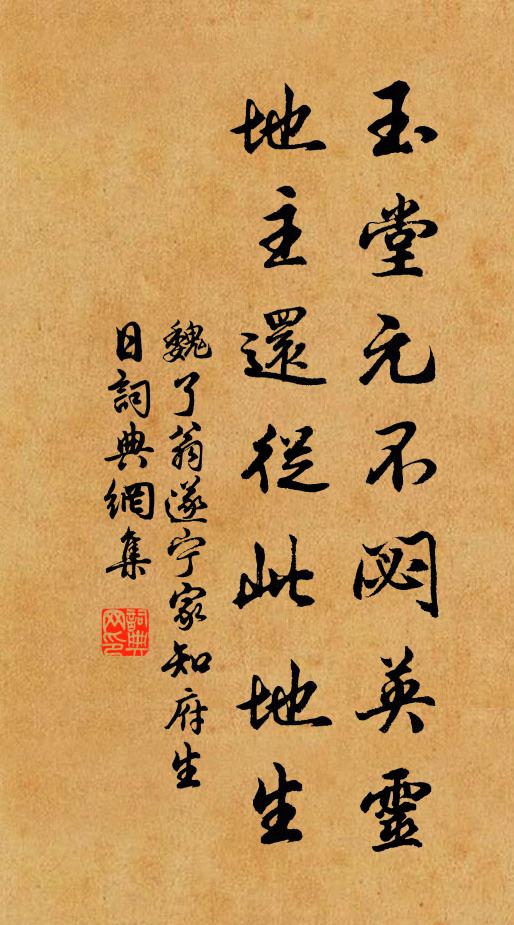 玉堂元不閟英靈
地主還從此地生
魏了翁遂宁家知府生
日詞典網集
詞典
网印